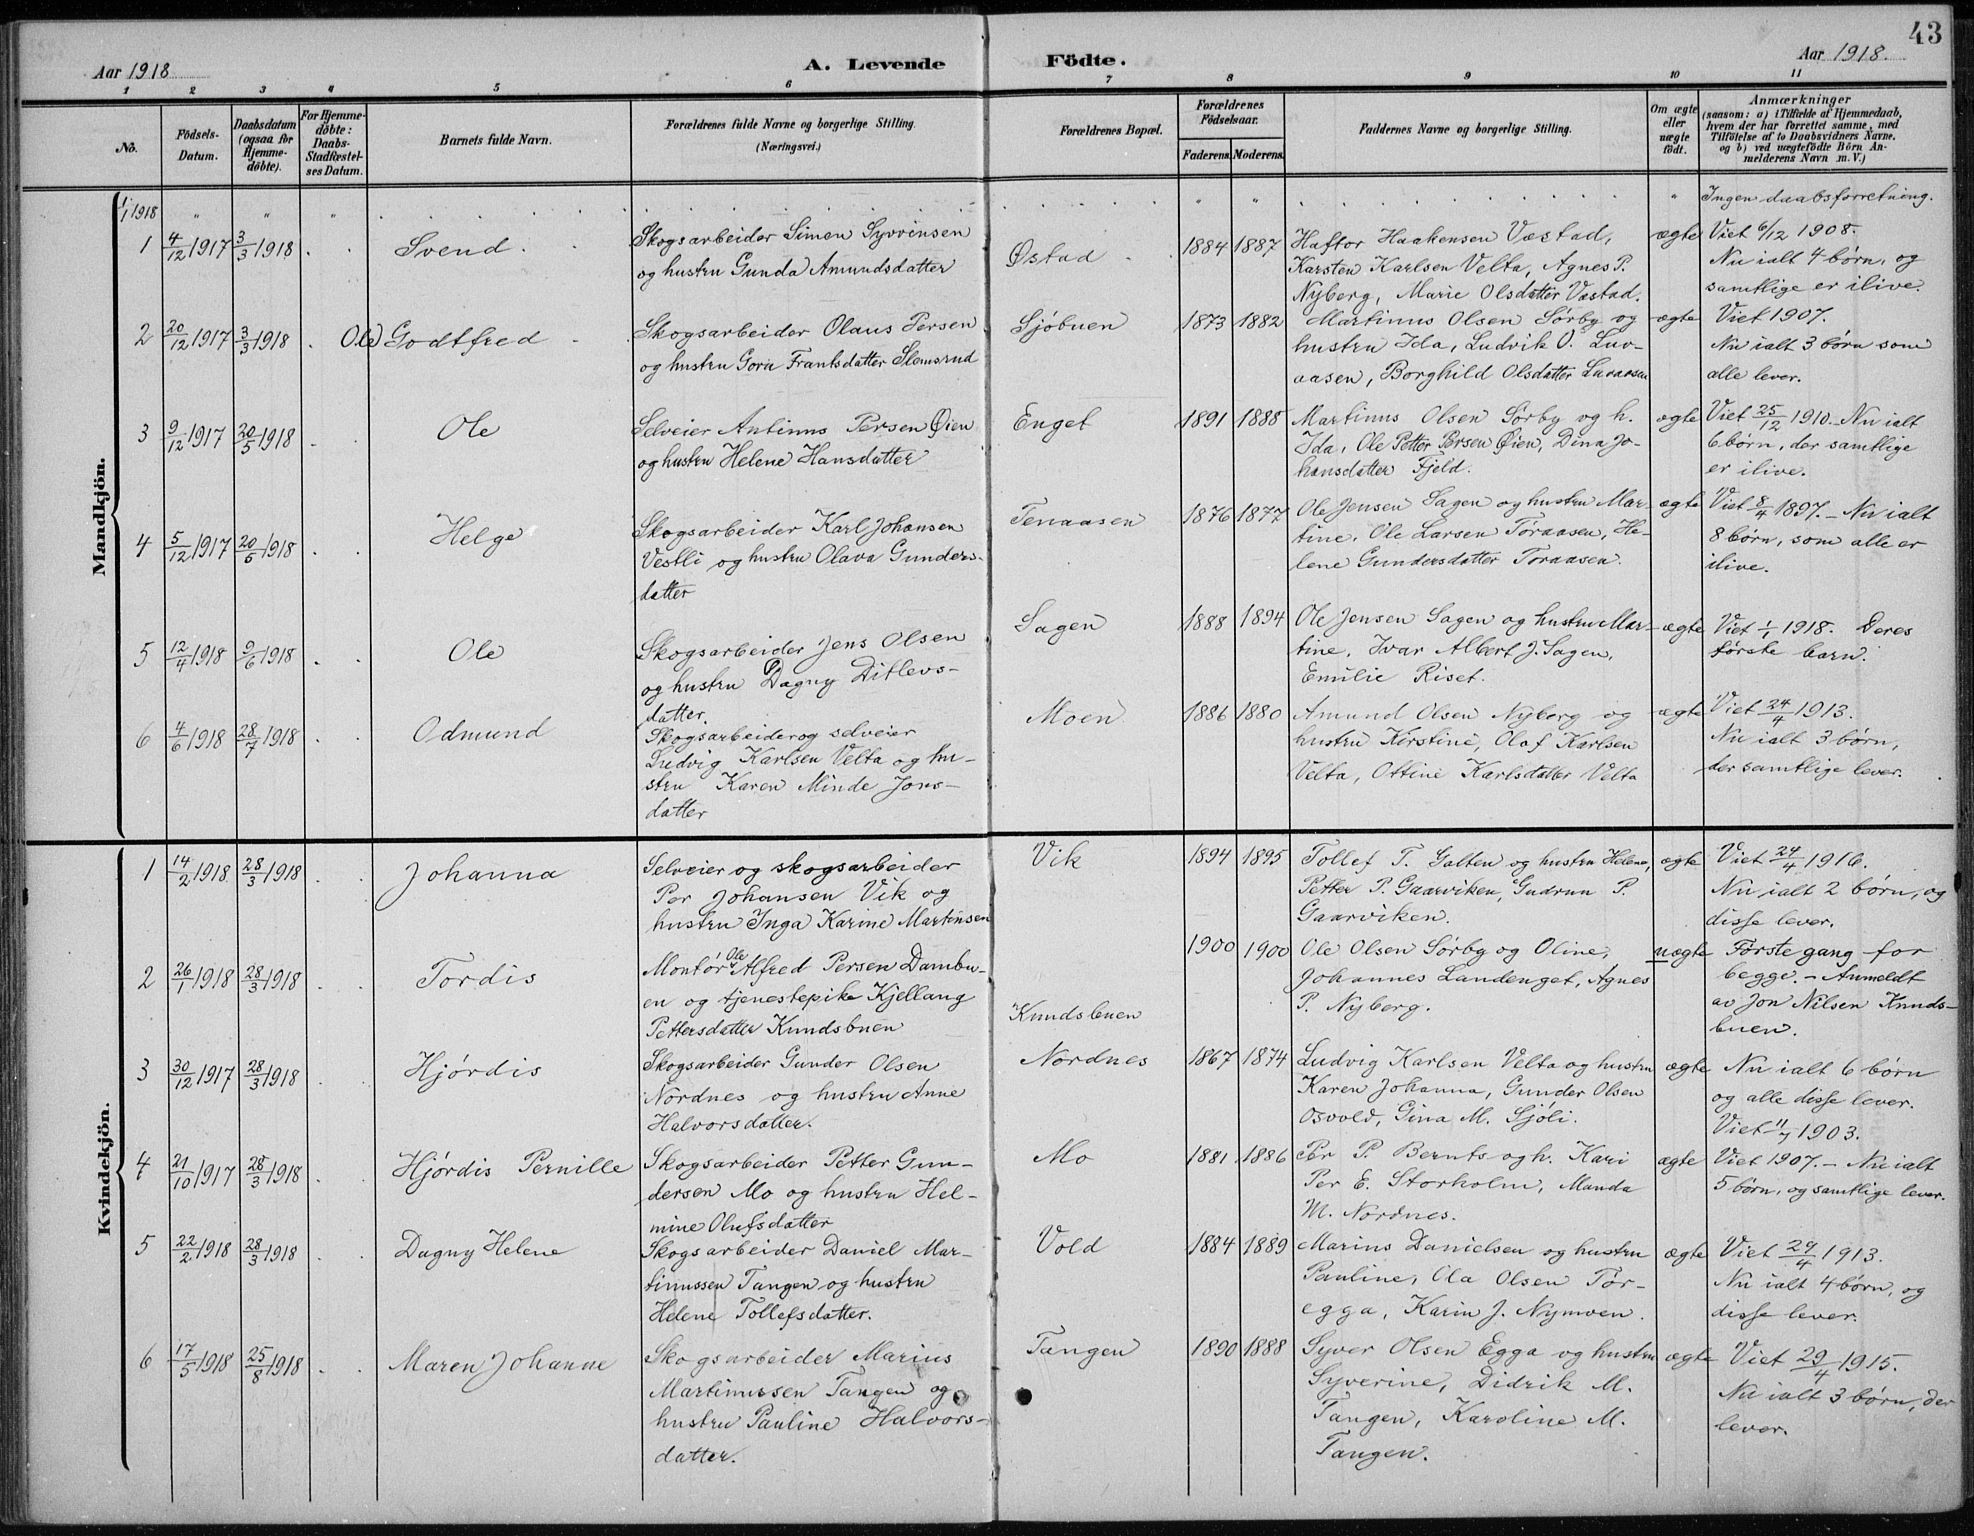 43
Aar 1918
A. Levende Födte.
Aar 1918.
1 2 3 4 5 6 7 8 9 10 11
No.
Födsels-
Datum.
Daabsdatum
(ogsaa for
Hjemme-
døbte).
For Hjemme-
döbte:
Daabs-
Stadfæstel-
ses Datum.
Barnets fulde Navn.
Forældrenes fulde Navne og borgerlige Stilling.
(Næringsvei.)
Forældrenes Bopæl.
Forældrenes
Födselsaar.
Faderens. Moderens.
Faddernes Navne og borgerlige Stilling.
Om ægte
eller
uægte
födt.
Anmærkninger
(saasom: a) i Tilfælde af Hjemmedaab,
hvem der har forrettet samme, med
Tilføielse af to Daabsvidners Navne,
og b) ved uægtefödte Börn An-
melderens Navn m. V.)
Mandkjön.
1/1 1918 " " " " " " Ingen daabsforretning.
1 4/12 1917 3/3 1918 Svend
Skogsarbeider Simen Syvrinsen
og hustru Gunda Amundsdatter
Østad 1884 1887
Haftor Haakensen Væstad,
Karsten Karlsen Velta, Agnes P.
Nyberg, Marie Olsdatter Væstad.
ægte
Viet 6/12 1908.
Nu ialt 4 børn, og
samtlige er ilive.
2 20/12 1917 3/3 1918 Ole Godtfred
Skogsarbeider Olaus Persen
og hustru Goru Frantsdatter Slemsrud
Sjøbuen 1873 1882
Martinus Olsen Sørby og
hustru Ida, Ludvik O. Luv-
aasen, Borghild Olsdatter Luvaasen
ægte
Viet 1907.
Nu ialt 3 børn som
alle lever.
3 9/12 1917 20/5 1918 Ole
Selveier Antinus Persen Øien
og hustru Helene Hansdatter
Enget 1891 1888
Martinus Olsen Sørby og h.
Ida, Ole Petter Persen Øien, Dina Jo-
hansdatter Fjeld.
ægte
Viet 25/12 1910. Nu ialt
6 børn, der samtlige
er ilive.
4 5/12 1917 20/5 1918 Helge
Skogsarbeider Karl Johansen
Vestli og hustru Olava Gunders-
datter
Tenaasen 1876 1877
Ole Jensen Sagen og hustru Mar-
tine, Ole Larsen Tøraasen, He-
lene Gundersdatter Tøraasen.
ægte
Viet 8/4 1897. - Nu ialt
8 børn, som alle er
ilive.
5 12/4 1918 9/6 1918 Ole
Skogsarbeider Jens Olsen
og hustru Dagny Ditlevs-
datter.
Sagen 1888 1894
Ole Jensen Sagen og hustru Mar-
tine, Ivar Albert J. Sagen,
Emilie Riset.
ægte
Viet 1/1 1918. Deres
første barn.
6 4/6 1918 28/7 1918 Odmund
Skogsarbeider og selveier
Ludvig Karlsen Velta og hu-
stru Karen Minde Jons-
datter
Moen 1886 1880
Amund Olsen Nyborg og
hustru Kirstine, Olaf Karlsen
Velta, Ottine Karlsdatter Velta
ægte
Viet 24/4 1913.
Nu ialt 3 børn,
der samtlige lever.
Kvindekjön.
1 14/2 1918 28/3 1918 Johanna
Selveier og skogsarbeider
Per Johansen Vik og
hustru Inga Karine Martinsen
Vik 1894 1895
Tollef T. Galten og hustru Helene,
Petter P. Gaarviken, Gudrun P.
Gaarviken.
ægte
Viet 24/4 1916.
Nu ialt 2 børn, og
disse lever.
2 26/1 1918 28/3 1918 Tordis
Montør Ole Alfred Persen Dambu-
en og tjenestepike Kjellaug
Pettersdatter Knudsbuen
Knudsbuen 1900 1900
Ole Olsen Sørby og Oline,
Johannes Landenget, Agnes
P. Nyberg.
uægte
Første gang for
begge. - Anmeldt
av Jon Nilsen Knuds-
buen.
3 30/12 1917 28/3 1918 Hjørdis
Skogsarbeider Gunder Olsen
Nordnes og hustru Anne
Halvorsdatter.
Nordnes 1867 1874
Ludvig Karlsen Velta og hustru
Karen Johanna, Gunder Olsen
Osvold, Gina M. Sjøli.
ægte
Nu ialt 6 børn
og alle disse lever.
Viet 11/7 1903.
4 21/10 1917 28/3 1918 Hjørdis Pernille
Skogsarbeider Petter Gun-
dersen Mo og hustru Hel-
mine Olufsdatter
Mo 1881 1886
Per P. Bernts og h. Kari
Per E. Storholm, Manda
M. Nordnes.
ægte
Viet 1907. - Nu ialt
5 børn, og samtlige lever.
5 22/2 1918 28/3 1918 Dagny Helene
Skogsarbeider Daniel Mar-
tinussen Tangen og hustru
Helene Tollefsdatter.
Vold 1884 1889
Marius Danielsen og hustru
Pauline, Ola Olsen Tør-
egga, Karin J. Nymoen.
ægte
Viet 29/4 1913.
Nu ialt 4 børn, og
disse lever.
6 17/5 1918 25/8 1918 Maren Johanne
Skogsarbeider Marius
Martinussen Tangen og
hustru Pauline Halvors-
datter.
Tangen 1890 1888
Syver Olsen Egga og hustru
Syverine, Didrik M.
Tangen, Karoline M.
Tangen.
ægte
Viet 29/4 1915.
Nu ialt 3 børn, der
lever.